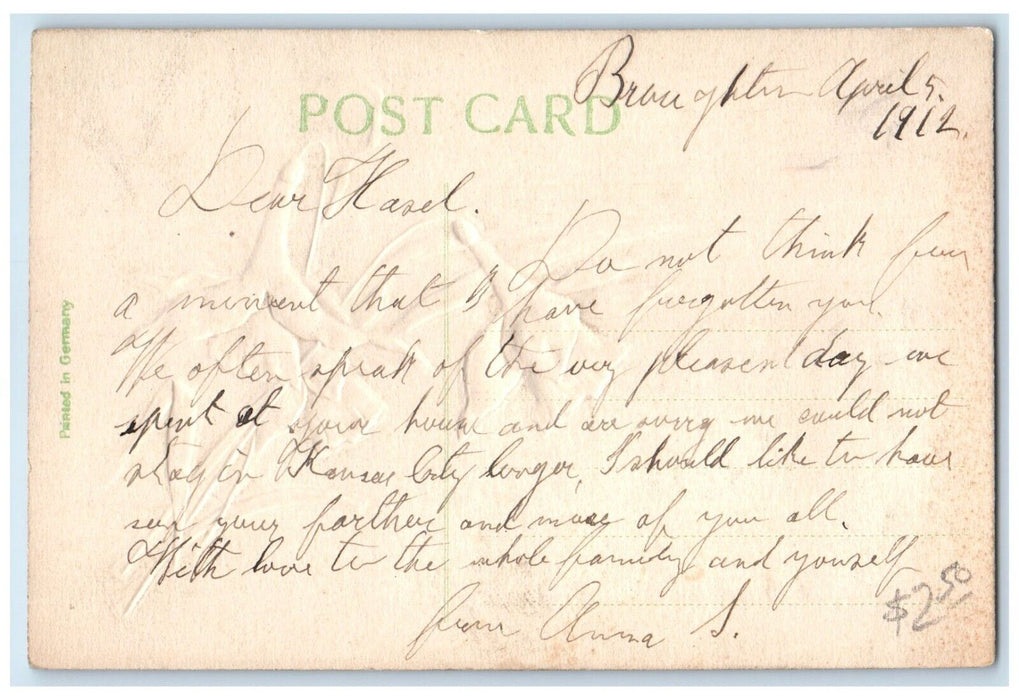 Broughton April 5.
1912.
POST CARD
Dear Hasel.
Do not think for
a moment that I have forgotten you.
We often speak of the very pleasent day we
spent at your house and are sorry we could not
stay in Kansas City longer, I should like to have
seen your farther and more of you all.
With love to the whole family and yourself
from Anna S.
Printed in Germany
$2.50